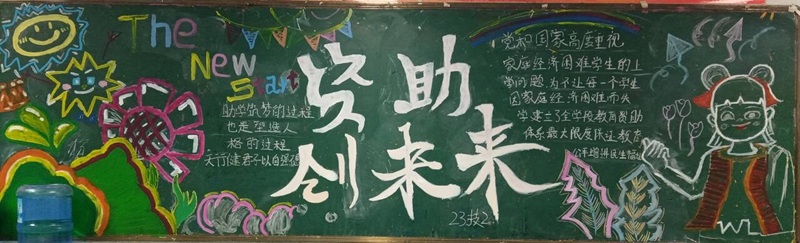 The
New
Start
资助
创未来
助学筑梦的过程
也是塑造人
格的过程
天行健君子以自强不息
党和国家高度重视
家庭经济困难学生的上
学问题,为不让每一个学生
因家庭经济困难而失
学建立了全学段教育资助
体系最大限度保证教育
公平增进民生福祉
23技2